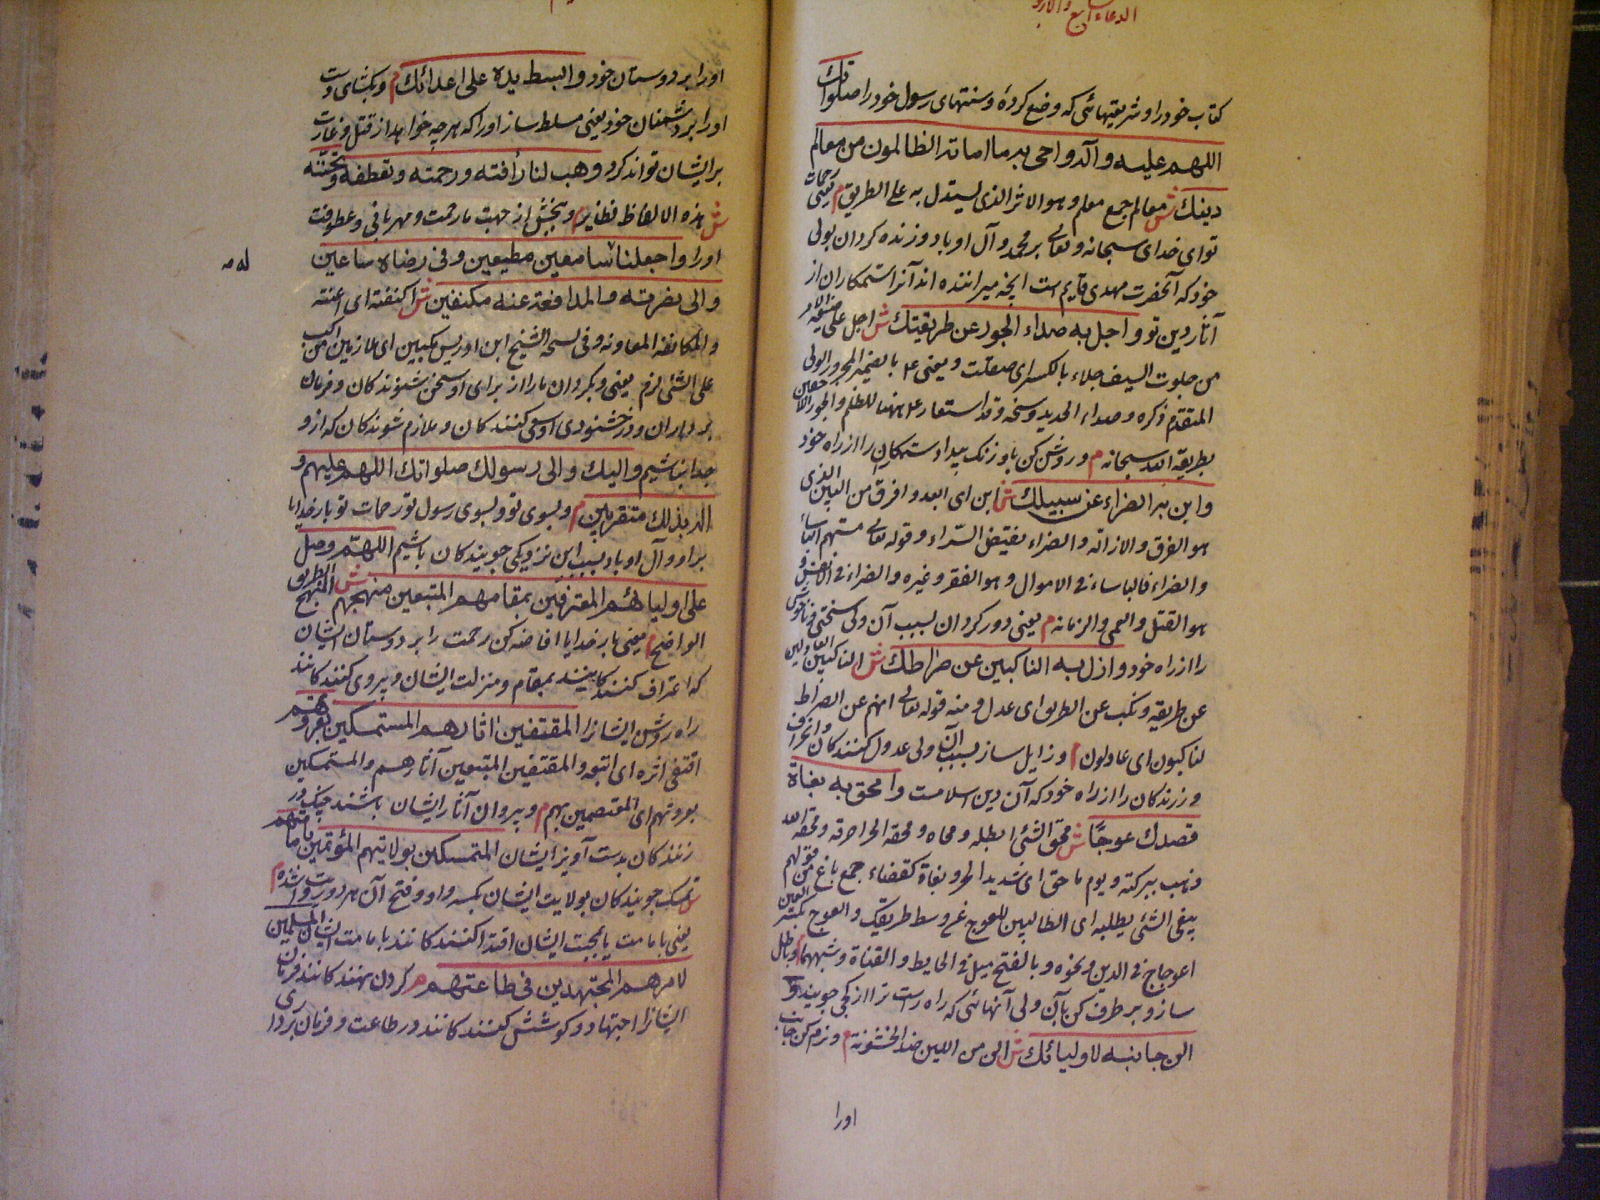 الدعاء السابع والاربعون
کتاب خود را و شریعتهائی که وضع کردهٔ و سنتهای رسول خود را صلواتك
اللهم عليه وآله واحى به ما اماته الظالمون من معالم
دينك ش معالم جمع معلم وهو الاثر الذى يستدل به على الطريق م يعنى رحمات
تو ای خدای سبحانه وتعالى بر محمد و آل او باد و زنده کردان بولی
خود که آنحضرت مهدی قایم است آنچه میرانده اند آنرا ستمکاران از
آثار دین تو واجل به صداء الجور عن طريقتك ش اجل على صیغة الامر
من جلوت السيف جلاء بالكسر ای صقلت و يعنى به بالضمير المجرور الولى
المتقدم ذكره وصداء الحديد وسخه وقد استعار ههنا للظلم والجور الآخذين
بطريقة الله سبحانه م و روشن کن باو زنک بیداد ستمکاران را از راه خود
وابن به الضراء عن سبيلك ش ابن ای ابعد وافرق من البين الذى
هو الفرق والازالة والضراء نقيض السراء وقوله تعالى مستهم الباساء
والضراء فالباساء فى الاموال وهو الفقر وغيره والضراء فى الانفس و
هو القتل والعمى والزمانة م يعنى دور کردان بسبب آن ولی سختی و ناخوشی
را از راه خود وازل به الناكبين عن صراطك ش الناكبين العادلين
عن طريقه ونكب عن الطريق ای عدل ومنه قوله تعالى انهم عن الصراط
لناكبون ای عادلون م و زایل ساز بسبب آن ولی عدول کنندکان و انحراف
ورزندکان را از راه خود که آن دین اسلامست وامحق به بغاة
قصدك عوجًا ش محق الشئ ابطله ومحاه ومحقه الحر احرقه ومحقه الله
ذهب ببركته ويوم ماحق ای شديد الحر وبغاة كقضاة جمع باغ من قولهم
يبغى الشئ يطلبه ای الطالبين للعوج فى وسط طريقك والعوج بكسر العين
اعوجاج فى الدين ونحوه وبالفتح ميل فى الحايط والقناة وشبههما م و باطل
ساز و برطرف کن بآن ولی آنهائی که راه راست ترا از کجی جویند و
الن جانبه لاوليائك ش الن من اللين ضد الخشونة م و نرم کن جانب
اورا
اورا بر دوستان خود وابسط يده على اعدائك م و بکشای دست
اورا بر دشمنان خود یعنی مسلط ساز اورا که هرچه خواهد از قتل و غارت
بر ایشان تواند کرد وهب لنا رأفته ورحمته وتعطفه وتحننه
ش هذه الالفاظ نظاير م و ببخش از جهت ما رحمت و مهربانی و عطوفت
اورا واجعلنا له سامعين مطيعين وفى رضاه ساعين
والى نصرته والمدافعة عنه مكنفين ش اكنفته ای اعنته
والمكانفة المعاونة وفى نسخة الشيخ ابن ادريس مكبين ای ملازمين من اكب
على الشئ لزم يعنى و بکردان ما را از برای او سخن شنوندکان و فرمان
برداران و در خشنودی او سعی کنندکان و ملازم شوندکان که از و
جدا نباشیم واليك والى رسولك صلواتك اللهم عليهم و
آله بذلك متقربين م و بسوی تو و بسوی رسول تو رحمات تو بار خدایا
بر او و آل او باد بسبب این نزدیکی جویندکان باشیم اللهم وصل
على اوليائهم المعترفين بمقامهم المتبعين منهجهم ش المنهج الطريق
الواضح م یعنی بار خدایا افاضه کن رحمت را بر دوستان ایشان
که اعتراف کنندکانند بمقام و منزلت ایشان و پیروی کنندکانند
راه روشن ایشانرا المقتفين اثارهم المستمسكين بعروتهم
اقتفى اثره ای اتبعه والمقتفين المتبعين آثارهم والمستمسكين
بعروتهم ای المعتصمين بهم م و پیروان آثار ایشان باشند چنک در
زنندکان بدست آویز ایشان المتمسكين بولايتهم المؤتمين بامامتهم
ش تمسک جویندکان بولایت ایشان بکسر واو و فتح آن هر دو روایت شده م
یعنی بامامت یا بمحبت ایشان اقتدا کنندکانند بامامت ایشان المسلمين
لامرهم المجتهدين فى طاعتهم م کردن نهندکانند فرمان
ایشانرا اجتهاد و کوشش کنندکانند در طاعت و فرمان برداری